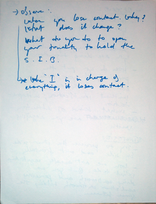 → observe:
when you lose contact, why?
What does it change?
What do you do to open
your to hold the
S. I. B.
→ the "I" is in charge of
everything, it loses contact.